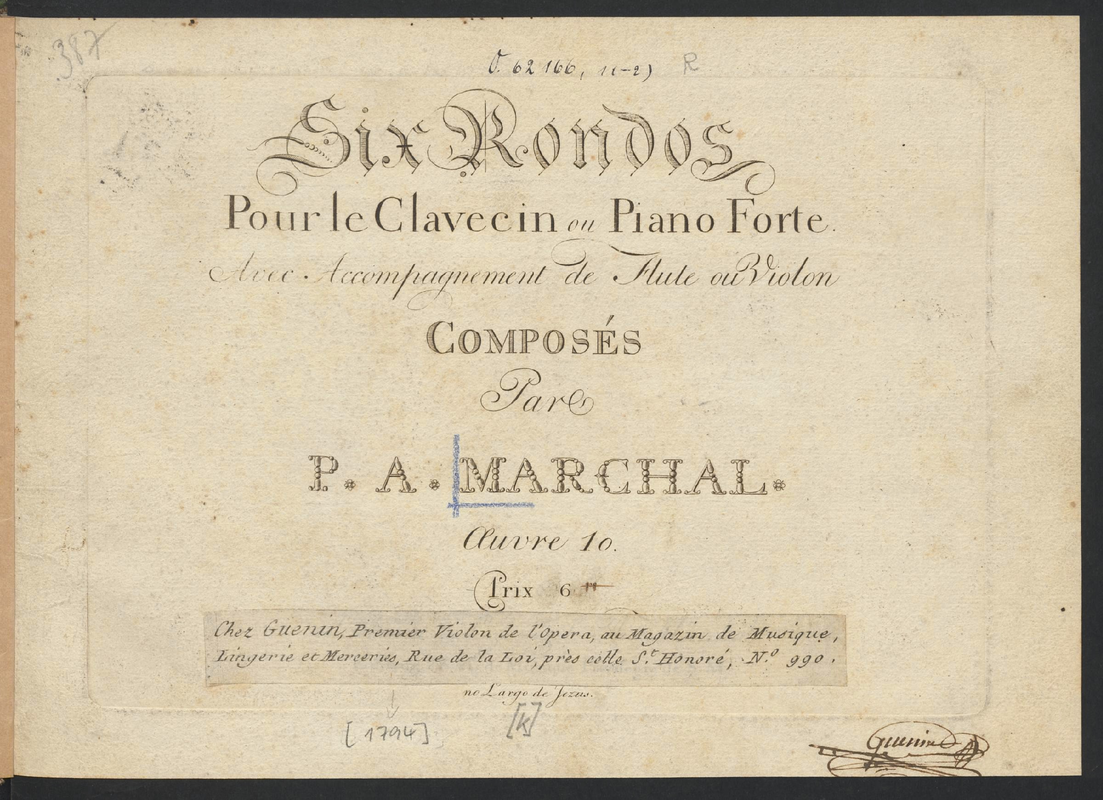 387
O. 62 166, 1(-2) R
Six Rondos
Pour le Clavecin ou Piano Forte.
Avec Accompagnement de Flute ou Violon
COMPOSÉS
Par
P. A. MARCHAL.
Œuvre 10.
Prix 6
Chez Guenin, Premier Violon de l'Opera, au Magazin de Musique,
Lingerie et Merceries, Rue de la Loi, près celle S.t Honoré, N.o 990.
no Largo de Jezus.
[1794] [K]
Guenin